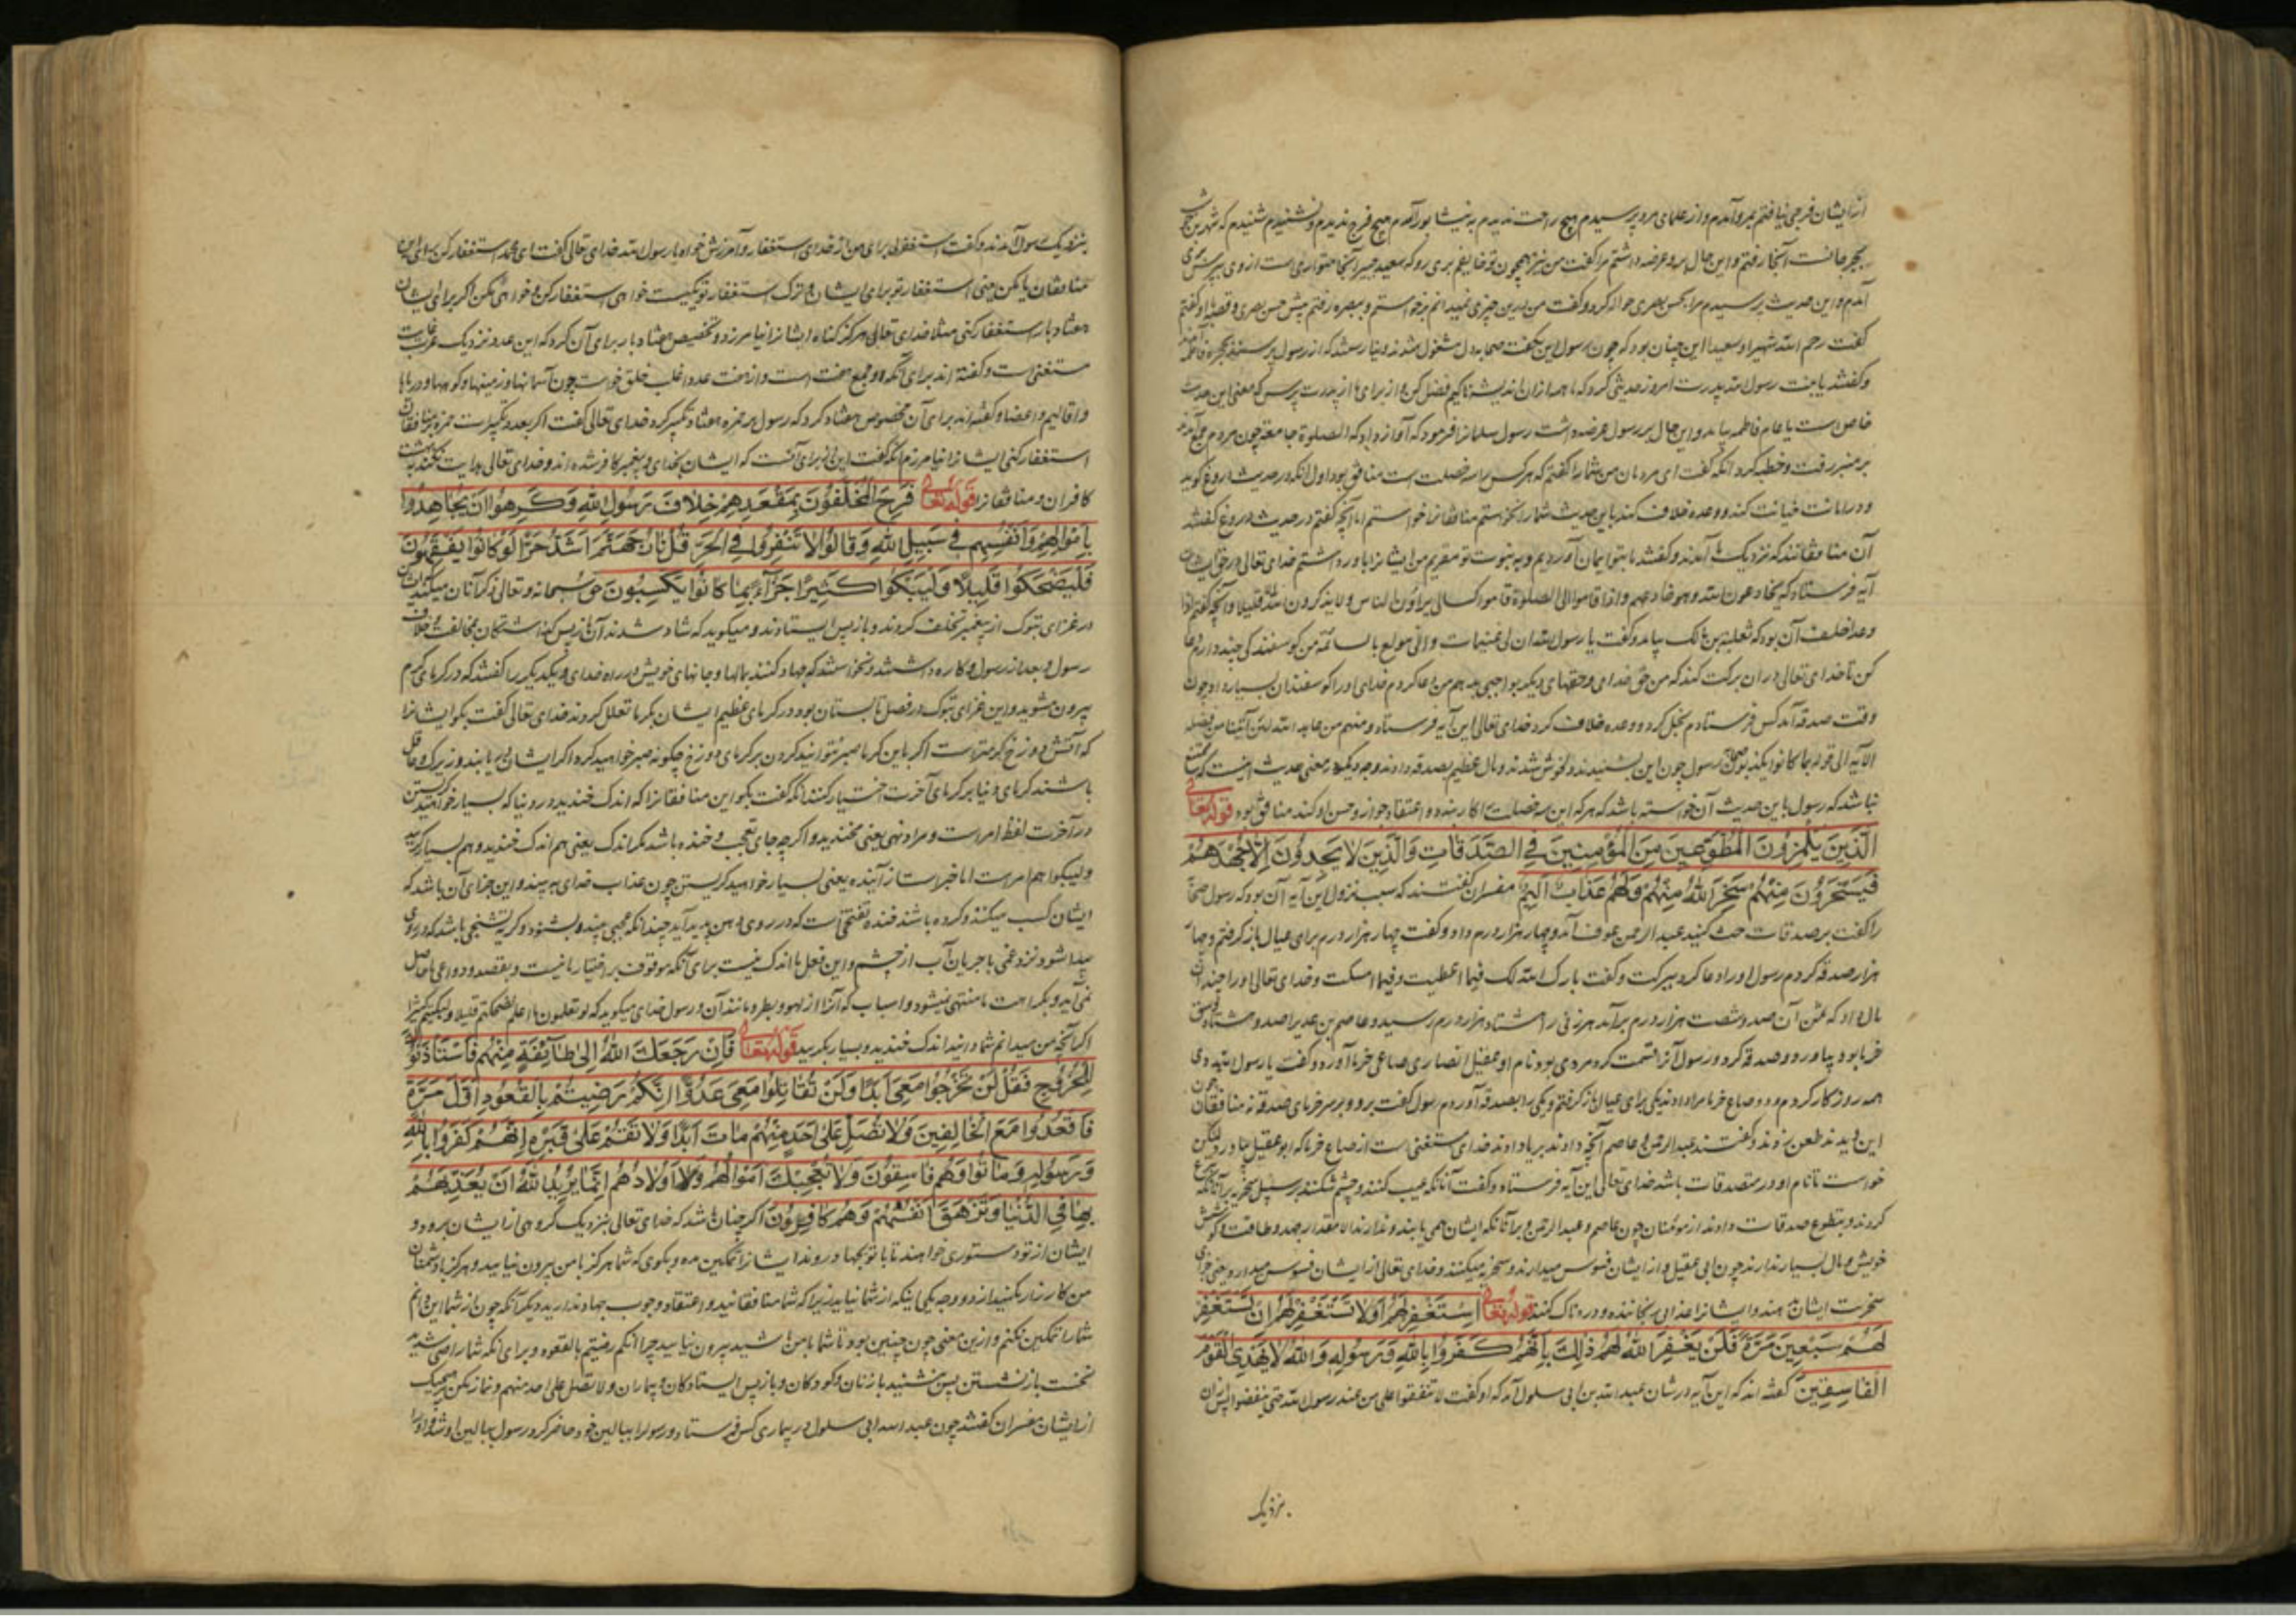 ازایشان فرجی نیافتم بمرو آمدم و از علمای مرو پرسیدم هیچ راحت ندیدم به نیشابور آمدم هیچ فرج ندیدم و نشنیدم شنیدم که شهر بن حوشب
بجرجانست آنجا رفتم و این حال برو عرضه داشتم مرا گفت من نیز همچون تو خایفم بری رو که سعید جبیر آنجا متواریست از وی بپرس بری
آمدم و این حدیث پرسیدم مرا بحسن بصری حواله کرد و گفت من بدین چیزی نمیدانم برخواستم و ببصره رفتم پیش حسن بصری و قصه با او گفتم
گفت رحم الله شهرا و سعیدا این چنان بود که چون رسول این بگفت صحابه دل مشغول شدند و نیارستند که از رسول پرسند بحجره فاطمه
و گفتند یا بنت رسول الله پدرت امروز حدیثی کرد که ما همه ازان اندیشناکیم فضل کن و از برای ما از پدرت پرس که معنی این حدیث
خاص است یا عام فاطمه بیامد و این حال بر رسول عرضه داشت رسول سلمانرا فرمود که آواز داد که الصلوة جامعة چون مردم جمع آمدند
بر منبر رفت و خطبه کرد آنگه گفت ای مردمان من شما را گفتم که هرکس را سه خصلت است منافق بود اول آنکه در حدیث دروغ گوید
و در امانت خیانت کند و وعده خلاف کند باین حدیث شما را نخواستم منافقانرا خواستم اما آنچه گفتم در حدیث دروغ گفتند
آن منافقانند که نزدیک ما آمدند و گفتند ما بتو ایمان آوردیم و به نبوت تو مقریم من ایشانرا باور داشتم خدای تعالی در حق ایشان
آیه فرستاد که یخادعون الله وهو خادعهم واذا قاموا الی الصلوة قاموا کسالی یراؤن الناس ولا یذکرون الله الا قلیلا و آنچه گفتم اذا
وعد اخلف آن بود که ثعلبة بن مالک بیامد و گفت یا رسول الله ان لی غنیمات وانی مولع بالسائمة من گوسفندکی چند دارم دعا
کن تا خدای تعالی دران برکت کند که من حق خدای و حقهای دیگر بواجبی بدهم من دعا کردم خدای او را گوسفندان بسیار داد چون
وقت صدقه آمد کس فرستادم بخل کرد و وعده خلاف کرد خدای تعالی این آیه فرستاد ومنهم من عاهد الله لئن آتینا من فضله
الآیه الی قوله بما کانوا یکذبون صحابه رسول چون این بشنیدند دلخوش شدند و مال عظیم بصدقه دادند وجه دیگر در معنی حدیث آنست که ممتنع
نباشد که رسول باین حدیث آن خواسته باشد که هرکه این سه خصلت را کار بندد و اعتقاد جواز و حسن او کند منافق بود قوله تعالی
الَّذِينَ يَلْمِزُونَ الْمُطَّوِّعِينَ مِنَ الْمُؤْمِنِينَ فِي الصَّدَقَاتِ وَالَّذِينَ لَا يَجِدُونَ إِلَّا جُهْدَهُمْ
فَيَسْخَرُونَ مِنْهُمْ سَخِرَ اللهُ مِنْهُمْ وَلَهُمْ عَذَابٌ أَلِيمٌ مفسران گفتند که سبب نزول این آیه آن بود که رسول صحابه
را گفت بر صدقات حث کنید عبدالرحمن عوف آمد و چهار هزار درم داد و گفت چهار هزار درم برای عیال باز گرفتم و چهار
هزار صدقه کردم رسول او را دعا کرد ببرکت و گفت بارک الله لک فیما اعطیت وفیما امسکت و خدای تعالی او را چندان
مال داد که ثمن آن صد و شصت هزار درم برآمد هر زنی را هشتاد هزار درم رسید و عاصم بن عدی را صد و هشتاد وسق
خرما بود بیاورد و صدقه کرد و رسول آنرا قسمت کرد مردی بود نام او عقیل انصاری صاعی خرما آورد و گفت یا رسول الله دی
همه روز کار کردم و دو صاع خرما مرا دادند یکی برای عیال باز گرفتم و یکی را بصدقه آوردم رسول گفت برو و بر سر خرمای صدقه نه منافقان چون
این دیدند طعن زدند و گفتند عبدالرحمن و عاصم آنچه دادند بریا دادند خدای مستغنی است از صاع خرما که ابو عقیل بیاورد لیکن
خواست تا نام او در متصدقات باشد خدای تعالی این آیه فرستاد و گفت آنانکه عیب کنند و چشم شکنند بر سبیل سخریه بر آنانکه
کردند و بتطوع صدقات دادند از مؤمنان چون عاصم و عبدالرحمن و بر آنانکه ایشان نمی یابند و ندارند الا مقدار جهد و طاقت و کوشش
خویش و مال بسیار ندارند چون ابی عقیل و از ایشان فسوس میدارند و سخریه میکنند و خدای تعالی از ایشان فسوس میدارد یعنی جزای
سخریت ایشان بدهد و ایشانرا عذابی رنجاننده و دردناک کند قوله تعالی اسْتَغْفِرْ لَهُمْ أَوْ لَا تَسْتَغْفِرْ لَهُمْ إِنْ تَسْتَغْفِرْ
لَهُمْ سَبْعِينَ مَرَّةً فَلَنْ يَغْفِرَ اللهُ لَهُمْ ذَلِكَ بِأَنَّهُمْ كَفَرُوا بِاللهِ وَرَسُولِهِ وَاللهُ لَا يَهْدِي الْقَوْمَ
الْفَاسِقِينَ گفته اند که این آیه در شان عبدالله بن ابی سلول آمد که او گفت لا تنفقوا علی من عند رسول الله حتی ینفضوا پس ایشان
نزدیک
بنزدیک رسول آمدند و گفت استغفر لی برای من از خدای استغفار و آمرزش خواه یا رسول الله خدای تعالی گفت ای محمد استغفار کن برای این
منافقان یا مکن یعنی استغفار تو برای ایشان و ترک استغفار تو یکیست خواهی استغفار کن و خواهی مکن اگر برای ایشان
هفتاد بار استغفار کنی مثلا خدای تعالی هرگز گناه ایشانرا نیامرزد و تخصیص هفتاد بار برای آن کرد که این عدد نزدیک عرب غایت
مستغنی است و گفته اند برای آنکه او جمع هفت است و از هفت عدد اغلب خلق خواست چون آسمانها و زمینها و کوهها و دریاها
و اقالیم و اعضا و گفته اند برای آن مخصوص هفتاد کرد که رسول بر حمزه هفتاد تکبیر کرد خدای تعالی گفت اگر بعدد تکبیرات حمزه بر منافقان
استغفار کنی ایشانرا نیامرزم آنگه گفت این برای آنست که ایشان بخدای و پیغمبر کافر شده اند و خدای تعالی هدایت نکند به بهشت
کافران و منافقانرا قوله تعالی فَرِحَ الْمُخَلَّفُونَ بِمَقْعَدِهِمْ خِلَافَ رَسُولِ اللهِ وَكَرِهُوا أَنْ يُجَاهِدُوا
بِأَمْوَالِهِمْ وَأَنْفُسِهِمْ فِي سَبِيلِ اللهِ وَقَالُوا لَا تَنْفِرُوا فِي الْحَرِّ قُلْ نَارُ جَهَنَّمَ أَشَدُّ حَرًّا لَوْ كَانُوا يَفْقَهُونَ
فَلْيَضْحَكُوا قَلِيلًا وَلْيَبْكُوا كَثِيرًا جَزَاءً بِمَا كَانُوا يَكْسِبُونَ حق سبحانه و تعالی ذکر آنان میکند که ایشان
در غزای تبوک از پیغمبر تخلف کردند و بازپس ایستادند و میگوید که شاد شدند آن بازپس گذاشتگان بمخالفت و خلاف
رسول و بعد از رسول و کاره داشتند و نخواستند که جهاد کنند بمالها و جانهای خویش در راه خدای و یکدیگر را گفتند که در گرمای گرم
بیرون مشوید و این غزای تبوک در فصل تابستان بود در گرمای عظیم ایشان بگرما تعلل کردند خدای تعالی گفت بگو ایشانرا
که آتش دوزخ گرمتر است اگر باین گرما صبر نتوانید کردن بر گرمای دوزخ چگونه صبر خواهید کرد اگر ایشان دریابند و زیرک و عاقل
باشند گرمای دنیا بر گرمای آخرت اختیار کنند آنگه گفت بگو این منافقانرا که اندک خندید در دنیا که بسیار خواهید گریستن
در آخرت لفظ امر است و مراد نهی یعنی مخندید و اگرچه جای تعجب و خنده باشد مگر اندک یعنی هم اندک خندید و هم بسیار گریید
ولیبکوا هم امر است اما خبر است از آینده یعنی بسیار خواهید گریستن چون عذاب خدای به بینند و این جزای آن باشد که
ایشان کسب میکنند و کرده باشند خنده تفتحی است که در روی و دهن پدید آید چندانکه عجبی بیند و بشنود و گریه تشنجی باشد که در روی
پیدا شود نزد غمی با جریان آب از چشم و این فعل ما اندک نیست برای آنکه موقوف بر اختیار ما نیست و بقصد و دواعی ما حاصل
نمی آید و بکراهت ما منتهی نمیشود و اسباب که آنرا از لهو و بطر و مانند آن و رسول خدای میگوید که لو تعلمون ما اعلم لضحکتم قلیلا ولبکیتم کثیرا
اگر آنچه من میدانم شما دانید اندک خندید و بسیار بگریید قوله تعالی فَإِنْ رَجَعَكَ اللهُ إِلَى طَائِفَةٍ مِنْهُمْ فَاسْتَأْذَنُوكَ
لِلْخُرُوجِ فَقُلْ لَنْ تَخْرُجُوا مَعِيَ أَبَدًا وَلَنْ تُقَاتِلُوا مَعِيَ عَدُوًّا إِنَّكُمْ رَضِيتُمْ بِالْقُعُودِ أَوَّلَ مَرَّةٍ
فَاقْعُدُوا مَعَ الْخَالِفِينَ وَلَا تُصَلِّ عَلَى أَحَدٍ مِنْهُمْ مَاتَ أَبَدًا وَلَا تَقُمْ عَلَى قَبْرِهِ إِنَّهُمْ كَفَرُوا بِاللهِ
وَرَسُولِهِ وَمَاتُوا وَهُمْ فَاسِقُونَ وَلَا تُعْجِبْكَ أَمْوَالُهُمْ وَلَا أَوْلَادُهُمْ إِنَّمَا يُرِيدُ اللهُ أَنْ يُعَذِّبَهُمْ
بِهَا فِي الدُّنْيَا وَتَزْهَقَ أَنْفُسُهُمْ وَهُمْ كَافِرُونَ اگر چنان باشد که خدای تعالی بنزدیک گروهی از ایشان برد و
ایشان از تو دستوری خواهند تا با تو بجهاد روند ایشانرا تمکین مده و بگوی که شما هرگز با من بیرون نیایید و هرگز با دشمنان
من کارزار نکنید از دو وجه یکی اینکه از شما نیاید زیرا که شما منافقانید و اعتقاد وجوب جهاد ندارید دیگر آنکه چون از شما این دانم
شما را تمکین نکنم و ازین معنی چون چنین بود تا شما با من باشید بیرون نیایید چرا انکم رضیتم بالقعود و برای آنکه شما راضی شدید
نخست باز نشستن پس بنشنید با زنان و کودکان و بیماران و بازپس ایستادگان ولا تصل علی احد منهم و نماز مکن بر هیچیک
از ایشان مفسران گفتند چون عبدالله ابی سلول در بیماری کس فرستاد و رسول را ببالین خود حاضر کرد رسول ببالین او شد و او را